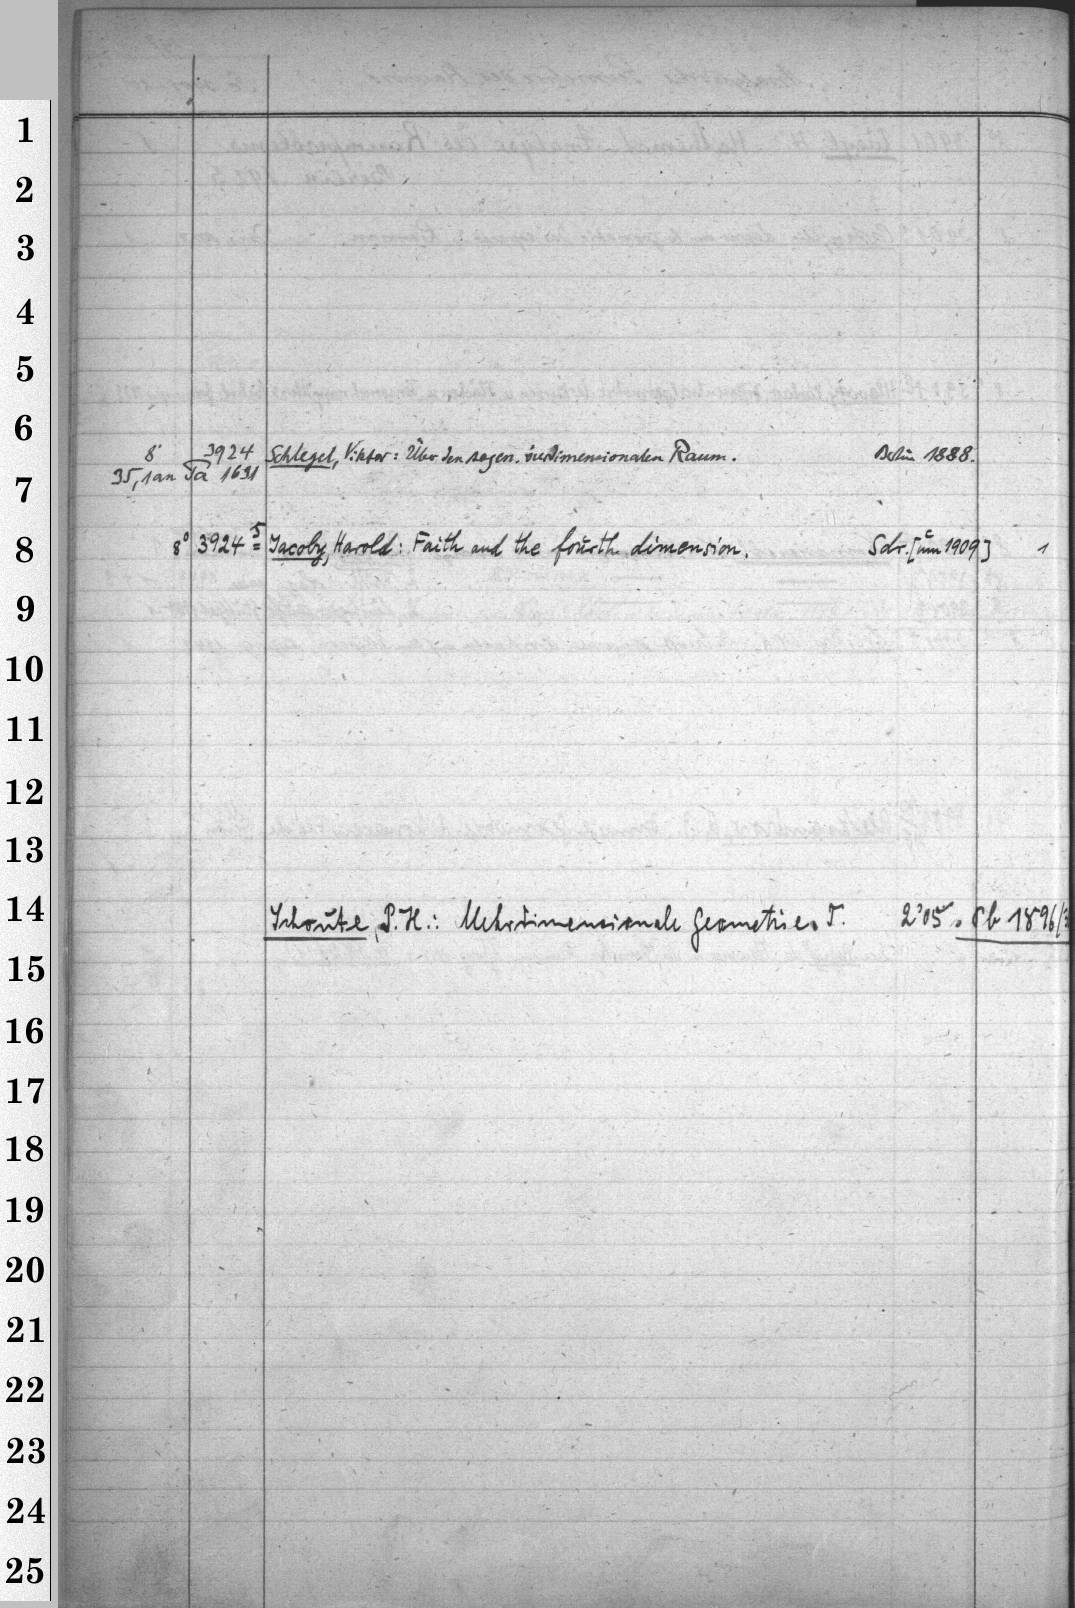 1
2
3
4
5
6
8° 3924 Schlegel, Viktor: Über den sogen. vierdimensionalen Raum. Berlin 1888.
35,1 an Ta 1631
7
8 8° 3924 5 Jacoby, Harold: Faith and the fourth dimension. Sdr. [um 1909] 1
9
10
11
12
13
14 Schoute, P. H.: Mehrdimensionale Geometrie. T. 2°05. Sb 1896/
15
16
17
18
19
20
21
22
23
24
25